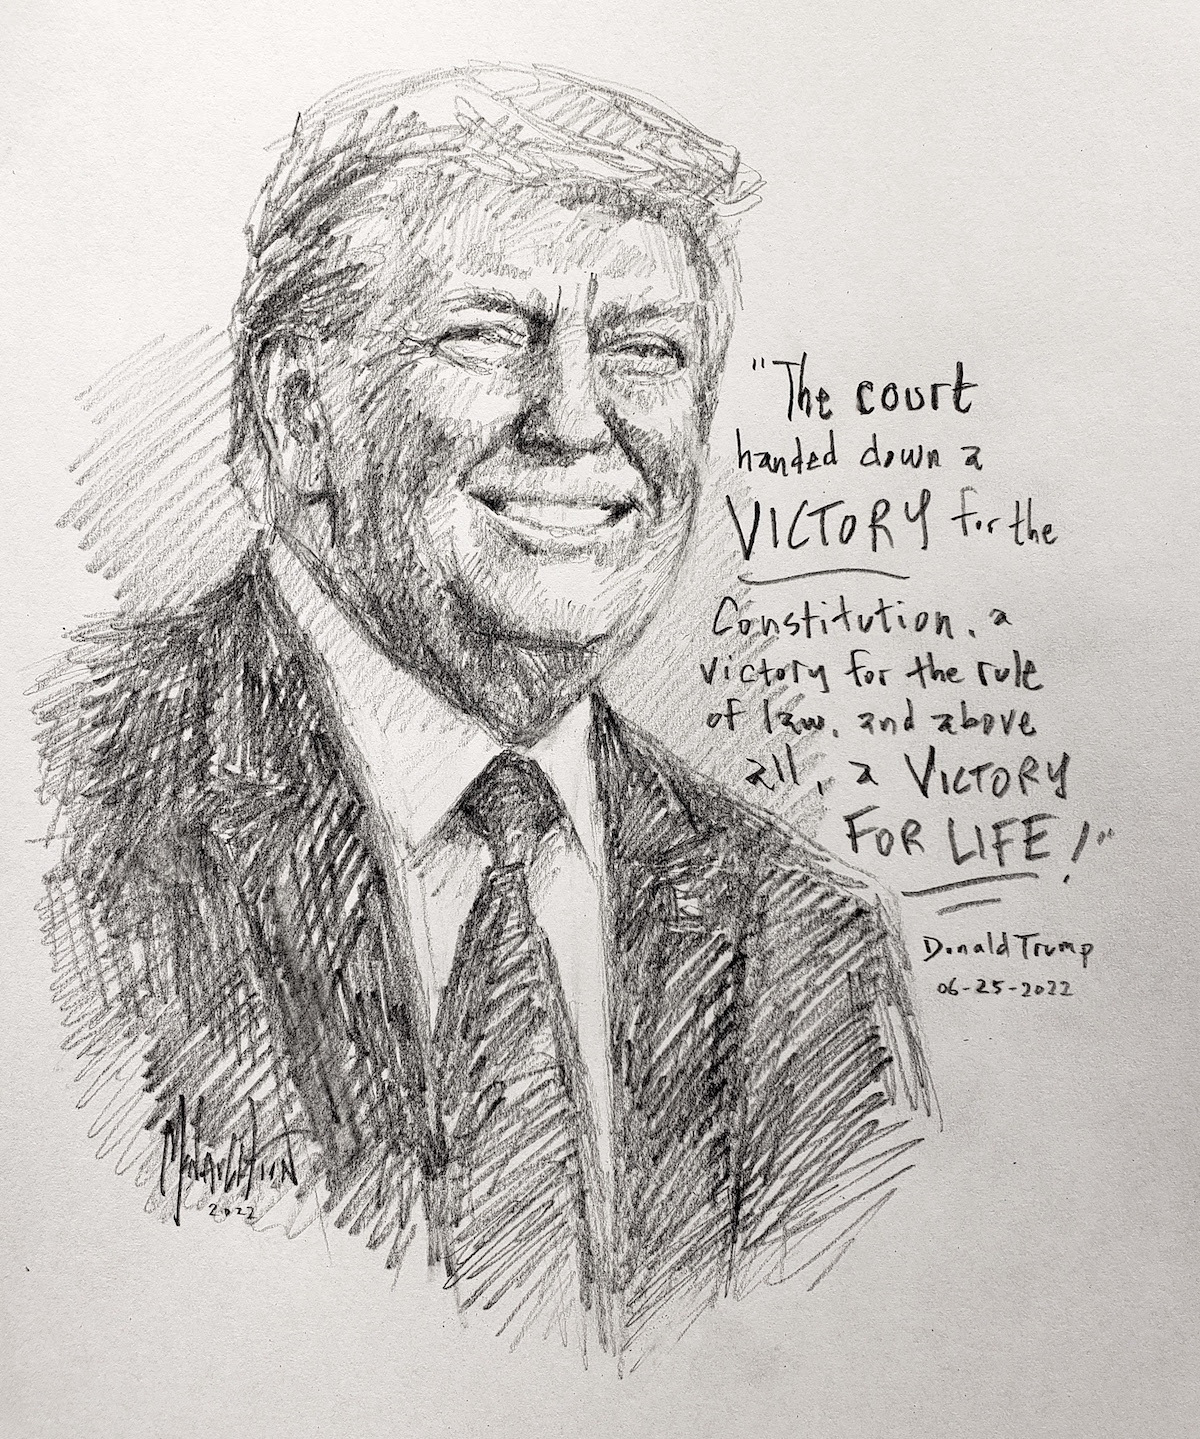 "The court
handed down a
VICTORY for the
Constitution, a
victory for the rule
of law, and above
all, a VICTORY
FOR LIFE!"
Donald Trump
06-25-2022
2022